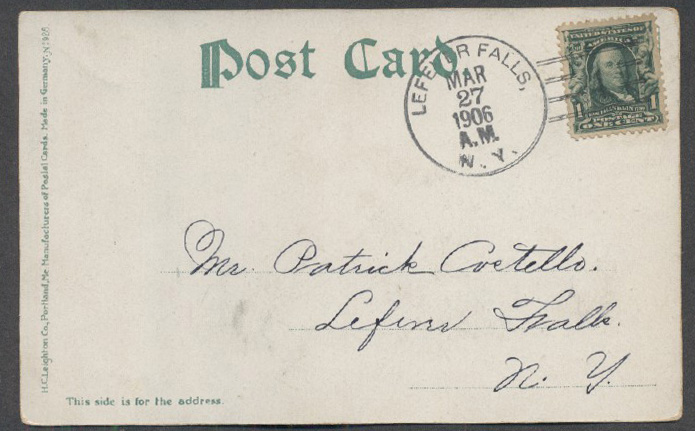 Post Card
LEFEVER FALLS,
MAR
27
1906
A.M.
N. Y.
UNITED STATES OF
AMERICA
1 1
POSTAGE
ONE CENT
Mr. Patrick Costello.
Lefever Falls.
N. Y.
This side is for the address.
H.C. Leighton Co., Portland, Me. Manufacturers of Postal Cards. Made in Germany.